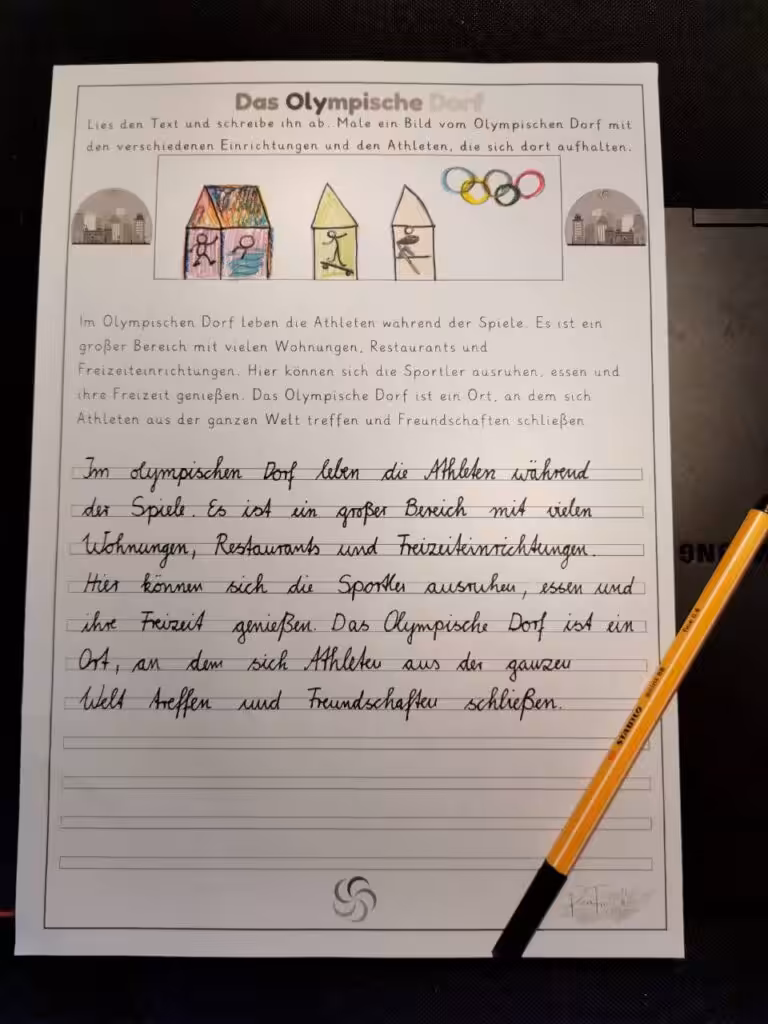 Das Olympische Dorf
Lies den Text und schreibe ihn ab. Male ein Bild vom Olympischen Dorf mit
den verschiedenen Einrichtungen und den Athleten, die sich dort aufhalten.
Im Olympischen Dorf leben die Athleten während der Spiele. Es ist ein
großer Bereich mit vielen Wohnungen, Restaurants und
Freizeiteinrichtungen. Hier können sich die Sportler ausruhen, essen und
ihre Freizeit genießen. Das Olympische Dorf ist ein Ort, an dem sich
Athleten aus der ganzen Welt treffen und Freundschaften schließen
Im olympischen Dorf leben die Athleten während
der Spiele. Es ist ein großer Bereich mit vielen
Wohnungen, Restaurants und Freizeiteinrichtungen.
Hier können sich die Sportler ausruhen, essen und
ihre Freizeit genießen. Das Olympische Dorf ist ein
Ort, an dem sich Athleten aus der ganzen
Welt treffen und Freundschaften schließen.
STABILO